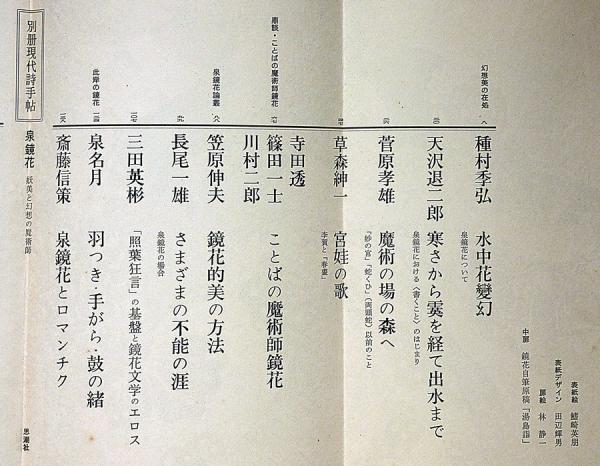 表紙絵 鰭崎英朋
表紙デザイン 田辺輝男
扉絵 林静一
中扉 鏡花自筆原稿「湯島詣」
幻想美の在処
八
種村季弘 水中花變幻
泉鏡花について
天沢退二郎 寒さから霙を経て出水まで
泉鏡花における〈書くこと〉のはじまり
菅原孝雄 魔術の場の森へ
「妙の宮」「蛇くひ」(両頭蛇)以前のこと
草森紳一 宮娃の歌
李賀と「春晝」
鼎談・ことばの魔術師鏡花
寺田透
篠田一士 ことばの魔術師鏡花
川村二郎
泉鏡花論叢
笠原伸夫 鏡花的美の方法
長尾一雄 さまざまの不能の涯
泉鏡花の場合
三田英彬 「照葉狂言」の基盤と鏡花文学のエロス
此岸の鏡花
泉名月 羽つき・手がら・鼓の緒
斎藤信策 泉鏡花とロマンチク
別册現代詩手帖 泉鏡花 妖美と幻想の魔術師 思潮社